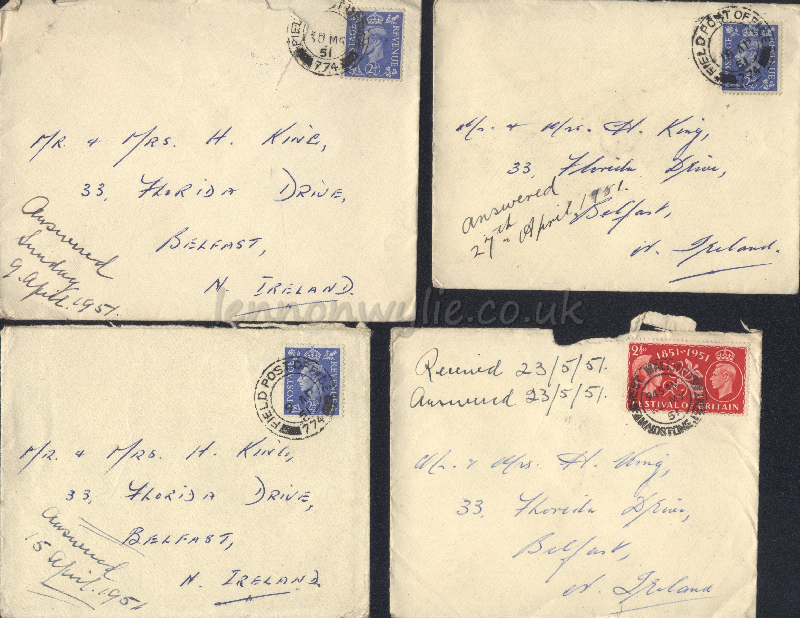 FIELD POST OFFICE
51
774
POSTAGE REVENUE
2½D
Mr. & Mrs. H. King,
33, Florida Drive,
Belfast,
N. Ireland.
Answered
Sunday
9 April. 1951.
FIELD POST OFFICE
51
774
POSTAGE REVENUE
Mr. & Mrs. H. King,
33, Florida Drive,
Belfast,
N. Ireland.
Answered
27th April, 1951.
lennonwylie.co.uk
FIELD POST OFFICE
774
POSTAGE REVENUE
Mr. & Mrs. H. King,
33, Florida Drive,
Belfast,
N. Ireland.
Answered
15 April. 1951
Received 23/5/51.
Answered 23/5/51.
2½D 1851-1951
FESTIVAL OF BRITAIN
Mr. & Mrs. H. King,
33, Florida Drive,
Belfast,
N. Ireland